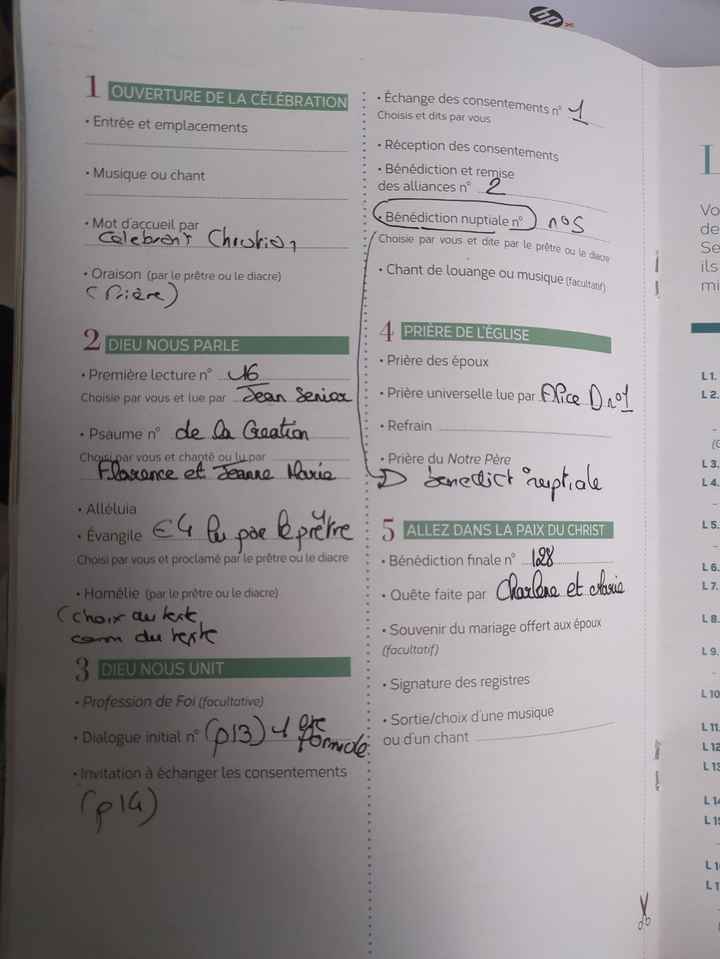 hp
1 OUVERTURE DE LA CÉLÉBRATION
• Entrée et emplacements
• Musique ou chant
• Mot d'accueil par
Celebrant Christian
• Oraison (par le prêtre ou le diacre)
(Prière)
2 DIEU NOUS PARLE
• Première lecture n° 46
Choisie par vous et lue par Jean Senior
• Psaume n° de la Creation
Choisi par vous et chanté ou lu par
Florence et Jeanne Marie
• Alléluia
• Évangile E4 lu par le prêtre
Choisi par vous et proclamé par le prêtre ou le diacre
• Homélie (par le prêtre ou le diacre)
(choix du texte
comm du texte
3 DIEU NOUS UNIT
• Profession de Foi (facultative)
• Dialogue initial n° (p13) 1 ere
formule
• Invitation à échanger les consentements
(p14)
• Échange des consentements n° 1
Choisis et dits par vous
• Réception des consentements
• Bénédiction et remise
des alliances n° 2
• Bénédiction nuptiale n° n°5
Choisie par vous et dite par le prêtre ou le diacre
• Chant de louange ou musique (facultatif)
4 PRIÈRE DE L'ÉGLISE
• Prière des époux
• Prière universelle lue par Alice D n°1
• Refrain
• Prière du Notre Père
benedict° nuptiale
5 ALLEZ DANS LA PAIX DU CHRIST
• Bénédiction finale n° 128
• Quête faite par Charlene et Marie
• Souvenir du mariage offert aux époux
(facultatif)
• Signature des registres
• Sortie/choix d'une musique
ou d'un chant
L
Vo
de
Se
ils
mi
L 1.
L 2.
L 3.
L 4.
L 5.
L 6.
L 7.
L 8.
L 9.
L 10
L 11.
L 12
L 13
L 14
L 15
L 1
L 1